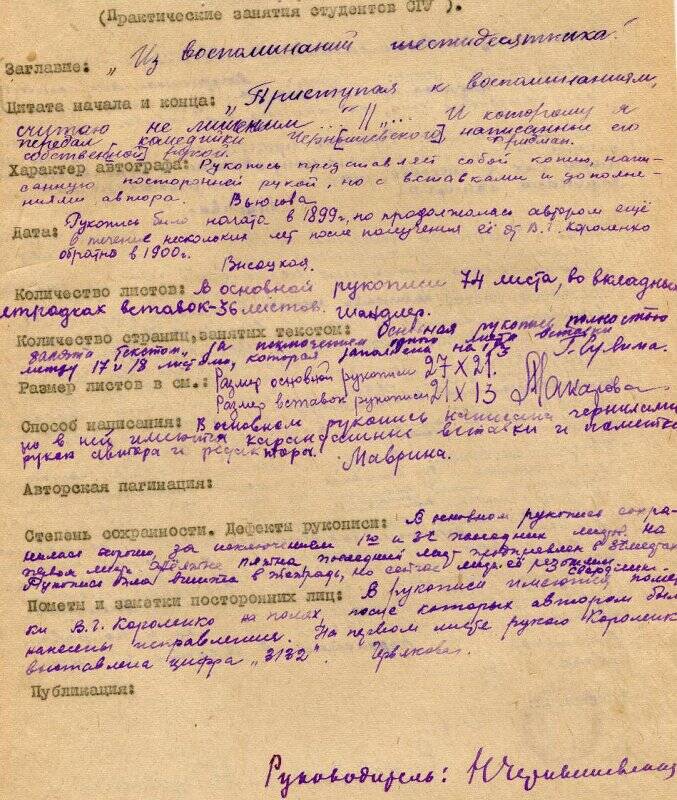 (Практические занятия студентов СГУ ).
Заглавие: „Из воспоминаний шестидесятника."
Цитата начала и конца: „Приступая к воспоминаниям,
считаю не лишним..." // „... И которому я
передал комедийки Чернышевск[ого] написанные его
собственной рукой.
Характер автографа: Рукопись представляет собой копию, напи-
санную посторонней рукой, но с вставками и дополне-
ниями автора. Вьюгова
Дата: Рукопись была начата в 1899г, но продолжалась автором ещё
в течение нескольких лет после получения её от В.Г. Короленко
обратно в 1900г.
Висацкая.
Количество листов: В основной рукописи 74 листа, во вкладных
тетрадках вставок-36 листов. Шандлер.
Количество страниц,занятых текстом: Основная рукопись полностью
занята текстом, за исключением одного листа вставки
между 17 и 18 листами, которая заполнена на
Размер листов в см.: Размер основной рукописи 27 X 21.
Размер вставок рукописи 21 X 13 Макарова
Способ написания: В основном рукопись написана чернилами
но в ней имеются карандашные вставки и пометки
рукой автора и редактора. Маврина.
Авторская пагинация:
Степень сохранности. Дефекты рукописи: В основном рукопись сохра-
нилась хорошо, за исключением 1го и 3х последних листов. На
первом листе пятна последний лист в местах
Рукопись была вшита в тетрадь, но сейчас листы её
Пометы и заметки посторонних лиц: В рукописи имеются помет-
ки В.Г. Короленко на полях, после которых автором были
нанесены исправления. На первом листе рукой Короленк
выставлена цифра „3132". Червякова.
Публикация:
Руководитель: Н Чернышевская